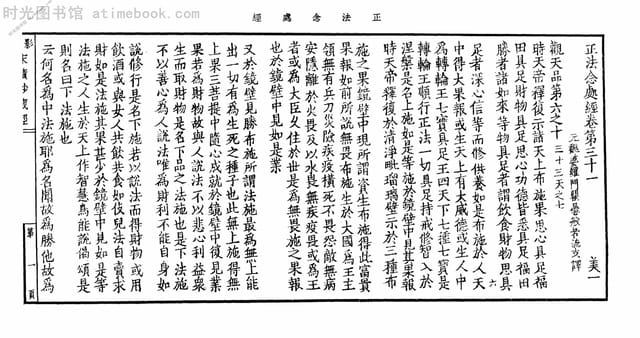 时光图书馆 atimebook.com
正法念處經
正法念處經卷第三十一 美一
元魏婆羅門瞿曇般若流支譯
觀天品第六之十 三十三天之七
時天帝釋復示諸天上布施果思心具足福
田具足財物具足思心功德皆悉具足福田
勝者諸如來等物具足者謂飲食財物思具
足者深心信等而修供養如是布施於人天
中得大果報或生天上有大威德或生人中
為轉輪王七寶具足王四天下七寶是
轉輪王順行正法一切具足持戒修智入於
涅槃是名上施如是等施於鏡壁中見其業報
時天帝釋復於清淨毗瑠璃壁示於三種布
施之果鏡壁中現所謂資生布施得此富貴
果報如前所說無畏布施生於大國為王主
領無有兵刀災險疾疫橫死不畏怨敵無病
安隱離於火畏及以水畏無疾疫畏或為王
者或為大臣久住於世是為無畏施之果報
也於鏡壁中見如是業
又於鏡壁見勝布施所謂法施最為無上能
出一切有為生死之種子也此無上施得無
上果三菩提中隨心成就於鏡壁中復見業
果若為財物故與人說法不以悲心利益眾
生而取財物是名下品之法施也是下法施
不以善心為人說法唯為財利不能自身如
說修行是名下施若以說法而得財物或用
飲酒或與女人共飲共食如伎兒法自賣求
財如是法施其果甚少於鏡壁中見如是等
法施之人生於天上作智慧鳥能說偈頌是
則名曰下法施也
云何名為中法施耶為名聞故為勝他故為
第一頁
六